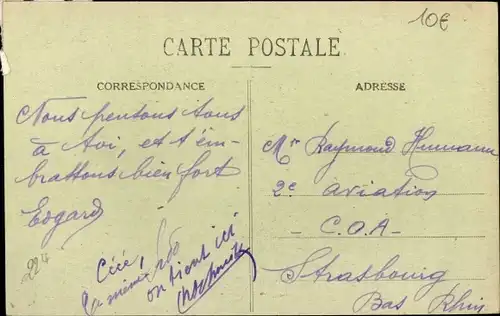 10€
CARTE POSTALE
CORRESPONDANCE
ADRESSE
Nous pensons tous
à toi, et t'em-
brassons bien fort
Edgard
Mr Raymond Humann
2e aviation
C.O.A.
Strasbourg
Bas Rhin
224
Cécé,
La même
on tient ici